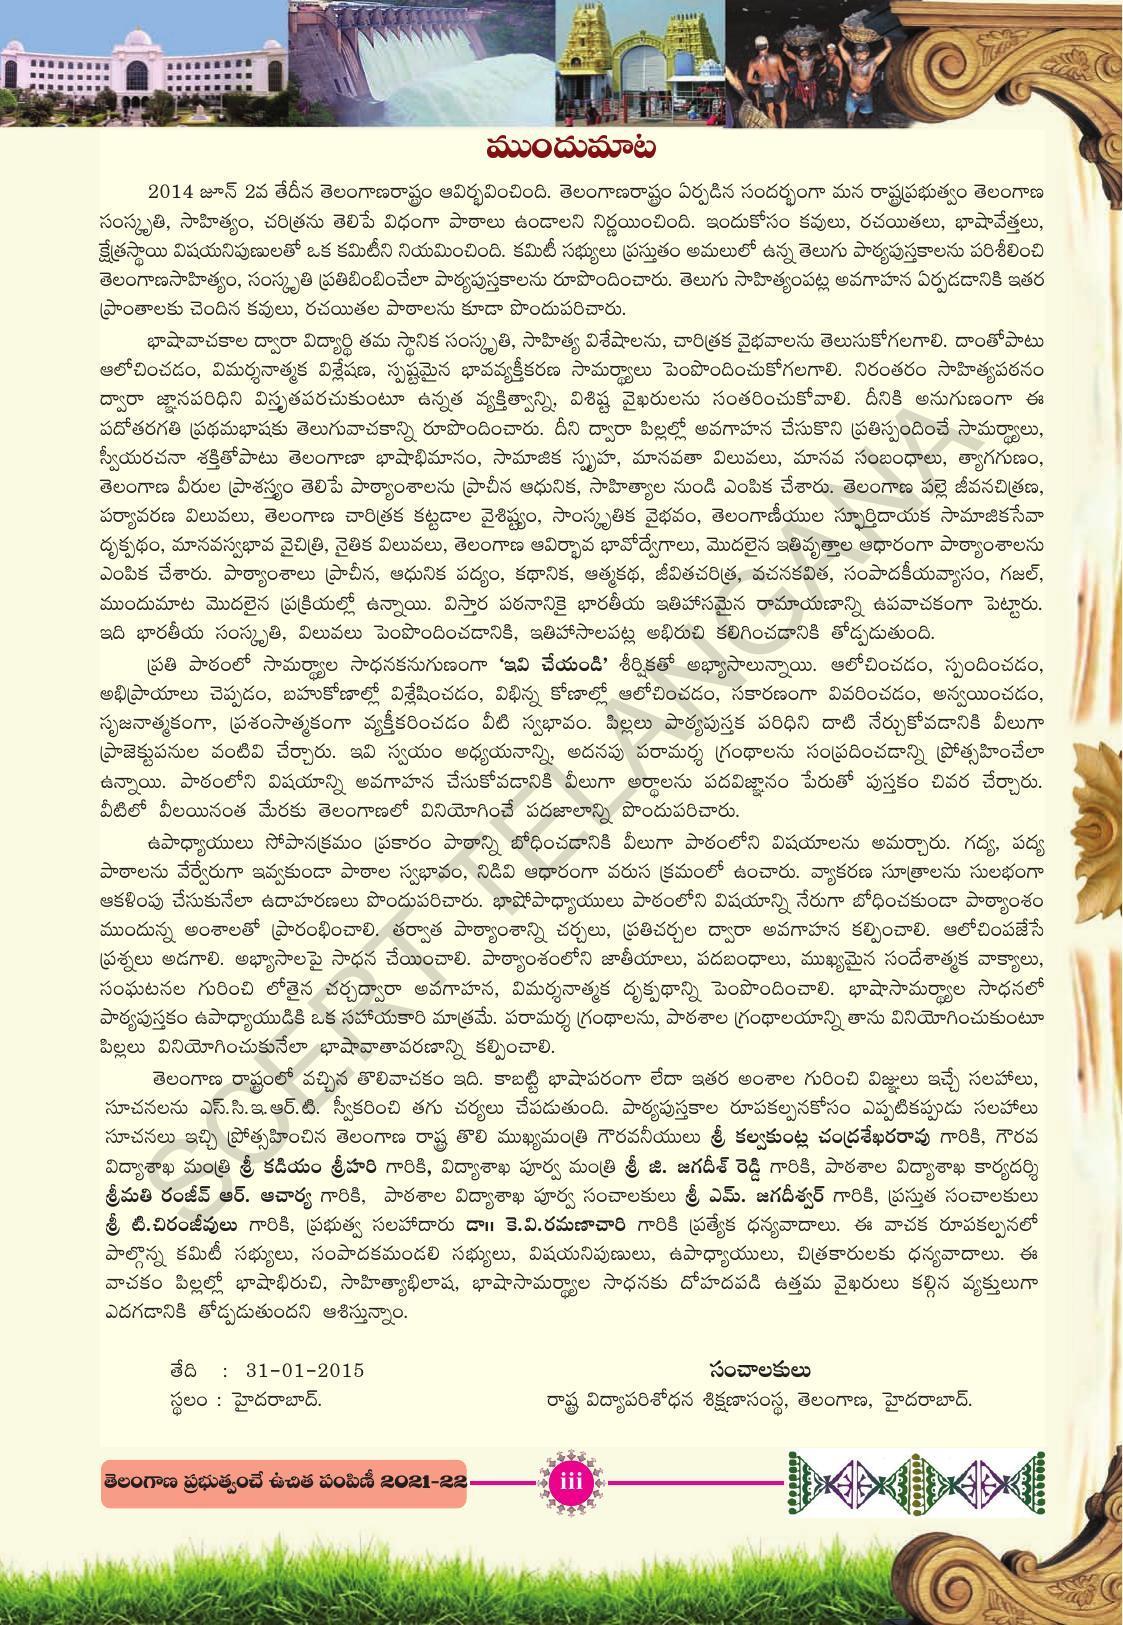 ముందుమాట
2014 జూన్ 2వ తేదీన తెలంగాణరాష్ట్రం ఆవిర్భవించింది. తెలంగాణరాష్ట్రం ఏర్పడిన సందర్భంగా మన రాష్ట్రప్రభుత్వం తెలంగాణ
సంస్కృతి, సాహిత్యం, చరిత్రను తెలిపే విధంగా పాఠాలు ఉండాలని నిర్ణయించింది. ఇందుకోసం కవులు, రచయితలు, భాషావేత్తలు,
క్షేత్రస్థాయి విషయనిపుణులతో ఒక కమిటీని నియమించింది. కమిటీ సభ్యులు ప్రస్తుతం అమలులో ఉన్న తెలుగు పాఠ్యపుస్తకాలను పరిశీలించి
తెలంగాణసాహిత్యం, సంస్కృతి ప్రతిబింబించేలా పాఠ్యపుస్తకాలను రూపొందించారు. తెలుగు సాహిత్యంపట్ల అవగాహన ఏర్పడడానికి ఇతర
ప్రాంతాలకు చెందిన కవులు, రచయితల పాఠాలను కూడా పొందుపరిచారు.
భాషావాచకాల ద్వారా విద్యార్థి తమ స్థానిక సంస్కృతి, సాహిత్య విశేషాలను, చారిత్రక వైభవాలను తెలుసుకోగలగాలి. దాంతోపాటు
ఆలోచించడం, విమర్శనాత్మక విశ్లేషణ, స్పష్టమైన భావవ్యక్తీకరణ సామర్థ్యాలు పెంపొందించుకోగలగాలి. నిరంతరం సాహిత్యపఠనం
ద్వారా జ్ఞానపరిధిని విస్తృతపరచుకుంటూ ఉన్నత వ్యక్తిత్వాన్ని, విశిష్ట వైఖరులను సంతరించుకోవాలి. దీనికి అనుగుణంగా ఈ
పదోతరగతి ప్రథమభాషకు తెలుగువాచకాన్ని రూపొందించారు. దీని ద్వారా పిల్లల్లో అవగాహన చేసుకొని ప్రతిస్పందించే సామర్థ్యాలు,
స్వీయరచనా శక్తితోపాటు తెలంగాణా భాషాభిమానం, సామాజిక స్పృహ, మానవతా విలువలు, మానవ సంబంధాలు, త్యాగగుణం,
తెలంగాణ వీరుల ప్రాశస్త్యం తెలిపే పాఠ్యాంశాలను ప్రాచీన ఆధునిక, సాహిత్యాల నుండి ఎంపిక చేశారు. తెలంగాణ పల్లె జీవనచిత్రణ,
పర్యావరణ విలువలు, తెలంగాణ చారిత్రక కట్టడాల వైశిష్ట్యం, సాంస్కృతిక వైభవం, తెలంగాణీయుల స్ఫూర్తిదాయక సామాజికసేవా
దృక్పథం, మానవస్వభావ వైచిత్రి, నైతిక విలువలు, తెలంగాణ ఆవిర్భావ భావోద్వేగాలు, మొదలైన ఇతివృత్తాల ఆధారంగా పాఠ్యాంశాలను
ఎంపిక చేశారు. పాఠ్యాంశాలు ప్రాచీన, ఆధునిక పద్యం, కథానిక, ఆత్మకథ, జీవితచరిత్ర, వచనకవిత, సంపాదకీయవ్యాసం, గజల్,
ముందుమాట మొదలైన ప్రక్రియల్లో ఉన్నాయి. విస్తార పఠనానికై భారతీయ ఇతిహాసమైన రామాయణాన్ని ఉపవాచకంగా పెట్టారు.
ఇది భారతీయ సంస్కృతి, విలువలు పెంపొందించడానికి, ఇతిహాసాలపట్ల అభిరుచి కలిగించడానికి తోడ్పడుతుంది.
ప్రతి పాఠంలో సామర్థ్యాల సాధనకనుగుణంగా ‘ఇవి చేయండి’ శీర్షికతో అభ్యాసాలున్నాయి. ఆలోచించడం, స్పందించడం,
అభిప్రాయాలు చెప్పడం, బహుకోణాల్లో విశ్లేషించడం, విభిన్న కోణాల్లో ఆలోచించడం, సకారణంగా వివరించడం, అన్వయించడం,
సృజనాత్మకంగా, ప్రశంసాత్మకంగా వ్యక్తీకరించడం వీటి స్వభావం. పిల్లలు పాఠ్యపుస్తక పరిధిని దాటి నేర్చుకోవడానికి వీలుగా
ప్రాజెక్టుపనుల వంటివి చేర్చారు. ఇవి స్వయం అధ్యయనాన్ని, అదనపు పరామర్శ గ్రంథాలను సంప్రదించడాన్ని ప్రోత్సహించేలా
ఉన్నాయి. పాఠంలోని విషయాన్ని అవగాహన చేసుకోవడానికి వీలుగా అర్థాలను పదవిజ్ఞానం పేరుతో పుస్తకం చివర చేర్చారు.
వీటిలో వీలయినంత మేరకు తెలంగాణలో వినియోగించే పదజాలాన్ని పొందుపరిచారు.
ఉపాధ్యాయులు సోపానక్రమం ప్రకారం పాఠాన్ని బోధించడానికి వీలుగా పాఠంలోని విషయాలను అమర్చారు. గద్య, పద్య
పాఠాలను వేర్వేరుగా ఇవ్వకుండా పాఠాల స్వభావం, నిడివి ఆధారంగా వరుస క్రమంలో ఉంచారు. వ్యాకరణ సూత్రాలను సులభంగా
ఆకళింపు చేసుకునేలా ఉదాహరణలు పొందుపరిచారు. భాషోపాధ్యాయులు పాఠంలోని విషయాన్ని నేరుగా బోధించకుండా పాఠ్యాంశం
ముందున్న అంశాలతో ప్రారంభించాలి. తర్వాత పాఠ్యాంశాన్ని చర్చలు, ప్రతిచర్చల ద్వారా అవగాహన కల్పించాలి. ఆలోచింపజేసే
ప్రశ్నలు అడగాలి. అభ్యాసాలపై సాధన చేయించాలి. పాఠ్యాంశంలోని జాతీయాలు, పదబంధాలు, ముఖ్యమైన సందేశాత్మక వాక్యాలు,
సంఘటనల గురించి లోతైన చర్చద్వారా అవగాహన, విమర్శనాత్మక దృక్పథాన్ని పెంపొందించాలి. భాషాసామర్థ్యాల సాధనలో
పాఠ్యపుస్తకం ఉపాధ్యాయుడికి ఒక సహాయకారి మాత్రమే. పరామర్శ గ్రంథాలను, పాఠశాల గ్రంథాలయాన్ని తాను వినియోగించుకుంటూ
పిల్లలు వినియోగించుకునేలా భాషావాతావరణాన్ని కల్పించాలి.
తెలంగాణ రాష్ట్రంలో వచ్చిన తొలివాచకం ఇది. కాబట్టి భాషాపరంగా లేదా ఇతర అంశాల గురించి విజ్ఞులు ఇచ్చే సలహాలు,
సూచనలను ఎస్.సి.ఇ.ఆర్.టి. స్వీకరించి తగు చర్యలు చేపడుతుంది. పాఠ్యపుస్తకాల రూపకల్పనకోసం ఎప్పటికప్పుడు సలహాలు
సూచనలు ఇచ్చి ప్రోత్సహించిన తెలంగాణ రాష్ట్ర తొలి ముఖ్యమంత్రి గౌరవనీయులు శ్రీ కల్వకుంట్ల చంద్రశేఖరరావు గారికి, గౌరవ
విద్యాశాఖ మంత్రి శ్రీ కడియం శ్రీహరి గారికి, విద్యాశాఖ పూర్వ మంత్రి శ్రీ జి. జగదీశ్ రెడ్డి గారికి, పాఠశాల విద్యాశాఖ కార్యదర్శి
శ్రీమతి రంజీవ్ ఆర్. ఆచార్య గారికి, పాఠశాల విద్యాశాఖ పూర్వ సంచాలకులు శ్రీ ఎమ్. జగదీశ్వర్ గారికి, ప్రస్తుత సంచాలకులు
శ్రీ టి.చిరంజీవులు గారికి, ప్రభుత్వ సలహాదారు డా॥ కె.వి.రమణాచారి గారికి ప్రత్యేక ధన్యవాదాలు. ఈ వాచక రూపకల్పనలో
పాల్గొన్న కమిటీ సభ్యులు, సంపాదకమండలి సభ్యులు, విషయనిపుణులు, ఉపాధ్యాయులు, చిత్రకారులకు ధన్యవాదాలు. ఈ
వాచకం పిల్లల్లో భాషాభిరుచి, సాహిత్యాభిలాష, భాషాసామర్థ్యాల సాధనకు దోహదపడి ఉత్తమ వైఖరులు కల్గిన వ్యక్తులుగా
ఎదగడానికి తోడ్పడుతుందని ఆశిస్తున్నాం.
తేది : 31-01-2015 సంచాలకులు
స్థలం : హైదరాబాద్. రాష్ట్ర విద్యాపరిశోధన శిక్షణాసంస్థ, తెలంగాణ, హైదరాబాద్.
తెలంగాణ ప్రభుత్వంచే ఉచిత పంపిణీ 2021-22
iii
SCERT TELANGANA